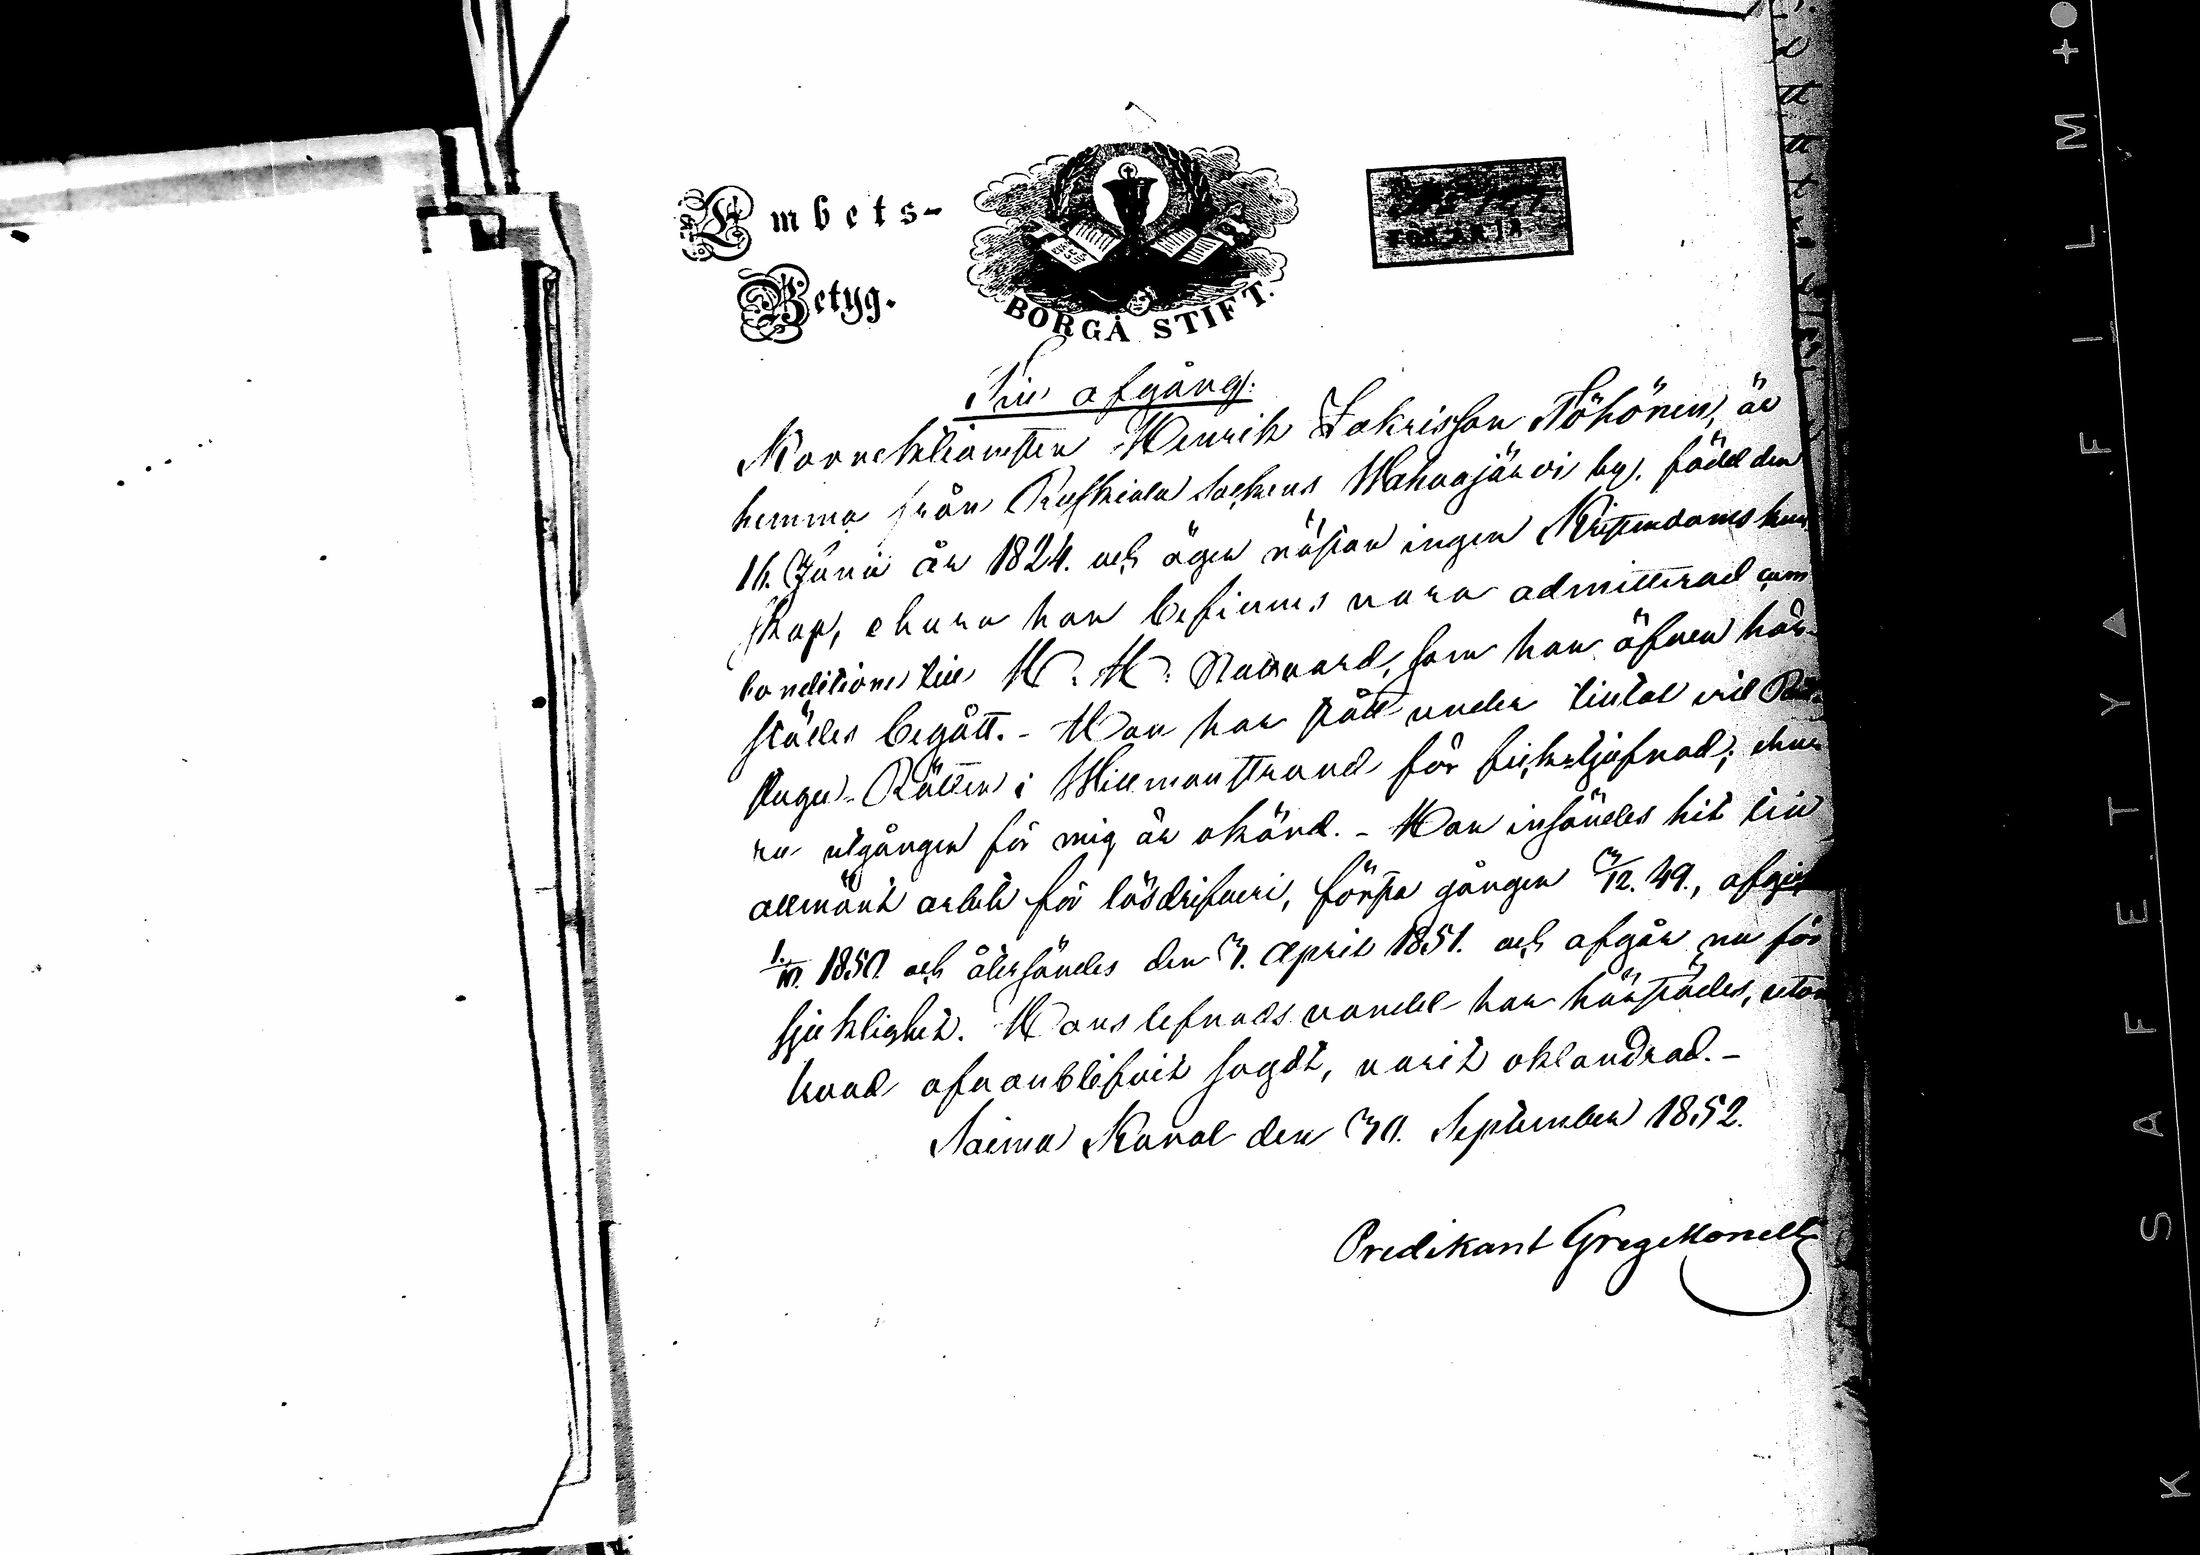 Embets-
Betyg.
BORGÅ STIFT.
Till afgång.
Korrektionisten Henrik Zakrisson Töhönen, är
hemma från Ruskiala Sockens Wahwajärvi by, född den
16. Junii år 1824. och äger nästan ingen Kristendomskun
skap, ehuru han befinnes vara admitterad cum
conditione till H. H. Nattvard, som han äfven här-
städes begått. - Han har stått under tiltal vid
Rätten i Willmanstrand för ficktjufnad; ehu
ru utgången för mig är okänd. - Han insändes hit till
allmänt arbete för lösdrifveri, första gången 3/12. 49., afgick
1850 och återsändes den 3. April 1851. och afgår nu för
sjuklighet. Hans lefnadsvandel har härstädes, utom
hvad ofvanblifvit sagdt, varit oklandrad. -
Saima Kanal den 30. September 1852.
Predikant Greg.
K SAFETY FILM